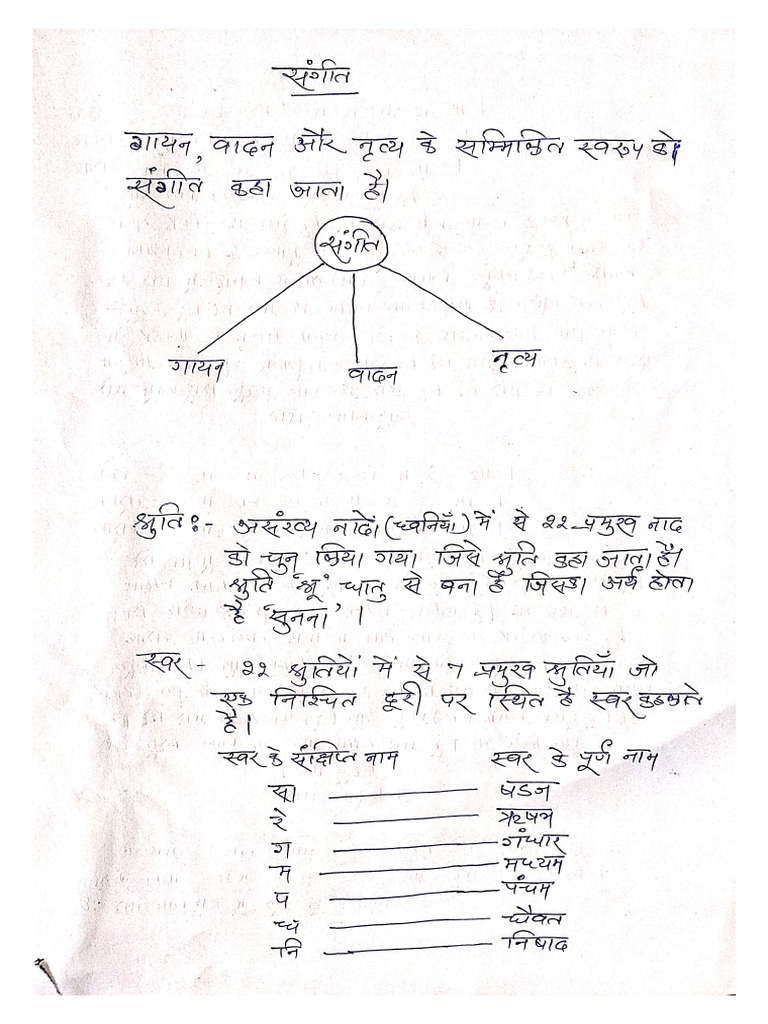 संगीत
गायन, वादन और नृत्य के सम्मिलित स्वरुप को
संगीत कहा जाता है।
संगीत
गायन वादन नृत्य
श्रुति:- असंख्य नादों (ध्वनियाँ) में से २२ प्रमुख नाद
को चुन लिया गया जिसे श्रुति कहा जाता है।
श्रुति 'श्रू' धातु से बना है जिसका अर्थ होता
है 'सुनना' ।
स्वर - २२ श्रुतियों में से ७ प्रमुख श्रुतियाँ जो
एक निश्चित दूरी पर स्थित है स्वर कहलाते
है।
स्वर के संक्षिप्त नाम स्वर के पूर्ण नाम
सा षडज
रे ऋषभ
ग गंधार
म मध्यम
प पंचम
ध धैवत
नि निषाद